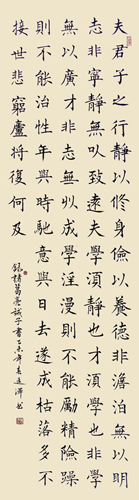 夫君子之行靜以修身儉以養德非澹泊無以明
志非寧靜無以致遠夫學須靜也才須學也非學
無以廣才非志無以成學淫漫則不能勵精險躁
則不能治性年與時馳意與日去遂成枯落多不
接世悲窮廬將復何及
錄諸葛亮誡子書乙未年